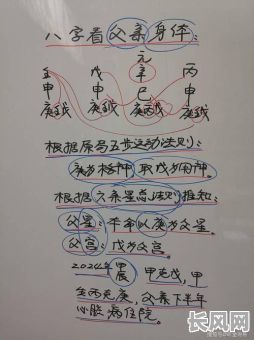 八字看父亲身体：
元
壬 戊 辛 丙
申 申 巳 申
庚壬戊 庚壬戊 庚丙戊 庚壬戊
根据原局五步运动法则：
庚为格神 取戊为用神
根据六亲星总法则推知
父星：本命以庚为父星。
父宫：戊为父宫。
2024年甲辰 甲克戊，甲
坐西克庚，父亲下半年
心脏病住院。
长风网